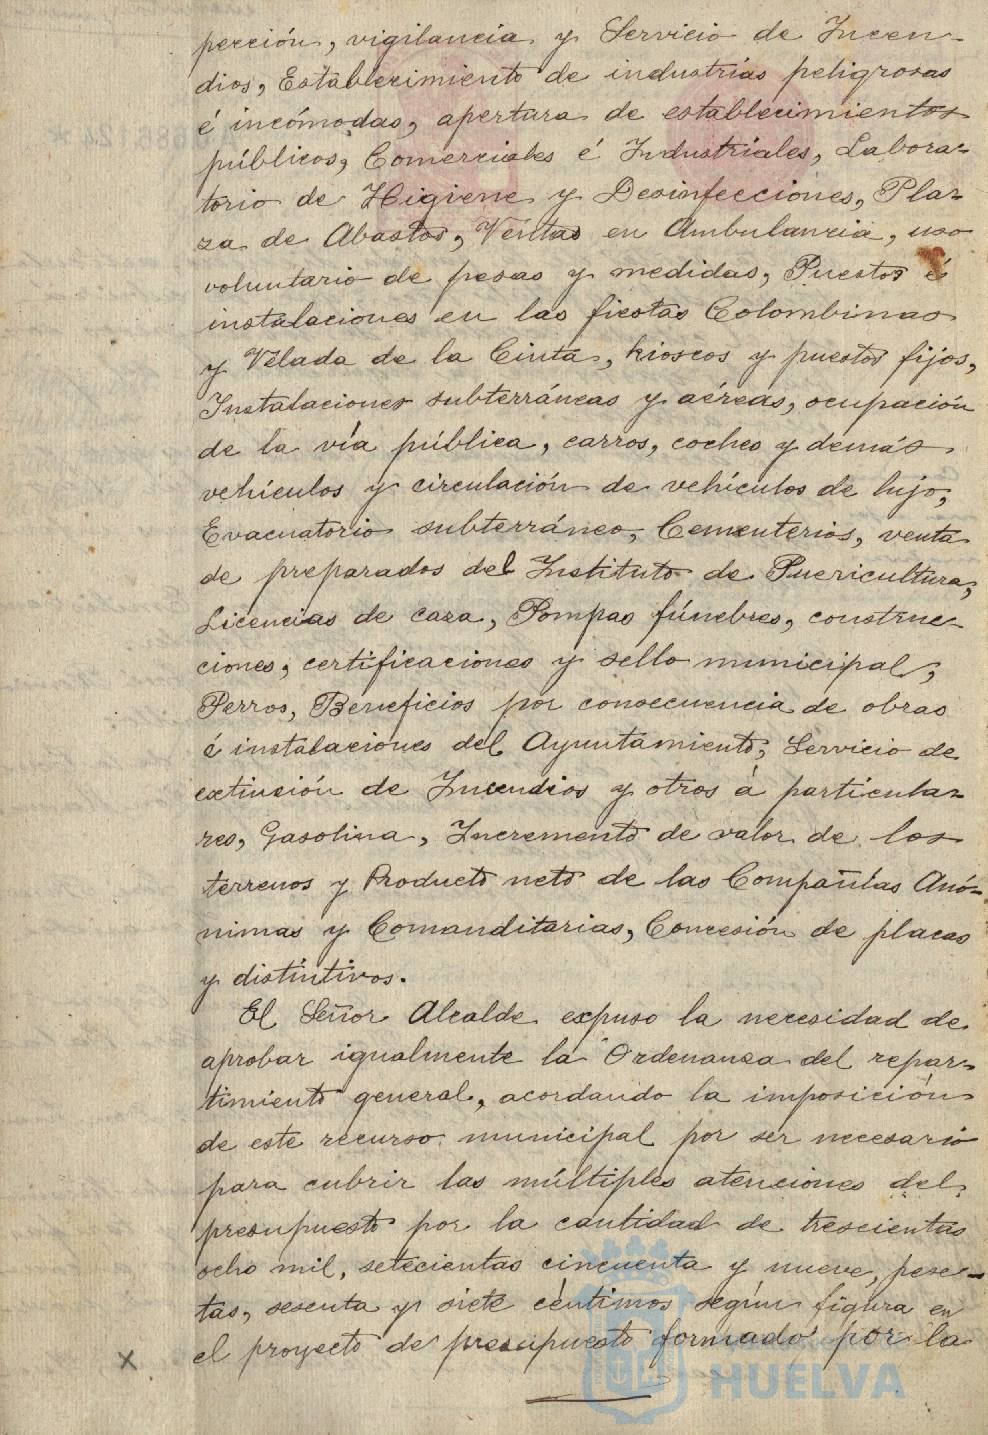 pección, vigilancia y Servicio de Incen-
dios, Establecimiento de industrias peligrosas
é incómodas, apertura de establecimientos
públicos, Comerciales é Industriales, Labora-
torio de Higiene y Desinfecciones, Pla-
za de Abastos, Ventas en Ambulancia, uso
voluntario de pesas y medidas, Puestos é
instalaciones en las fiestas Colombinas
y Velada de la Cinta, kioscos y puestos fijos,
Instalaciones subterráneas y aéreas, ocupación
de la vía pública, carros, coches y demás
vehículos y circulación de vehículos de lujo,
Evacuatorio subterráneo, Cementerios, venta
de preparados del Instituto de Puericultura,
Licencias de caza, Pompas fúnebres, construc-
ciones, certificaciones y sello municipal,
Perros, Beneficios por consecuencia de obras
é instalaciones del Ayuntamiento; Servicio de
extinción de Incendios y otros á particula-
res, Gasolina, Incremento de valor de los
terrenos y Producto neto de las Compañías Anó-
nimas y Comanditarias, Concesión de placas
y distintivos.
El Señor Alcalde expuso la necesidad de
aprobar igualmente la Ordenanza del repar-
timiento general, acordando la imposición
de este recurso municipal por ser necesario
para cubrir las múltiples atenciones del
presupuesto por la cantidad de trescientas
ocho mil, setecientas cincuenta y nueve, pese-
tas, sesenta y siete céntimos según figura en
el proyecto de presupuesto formado por la
HUELVA